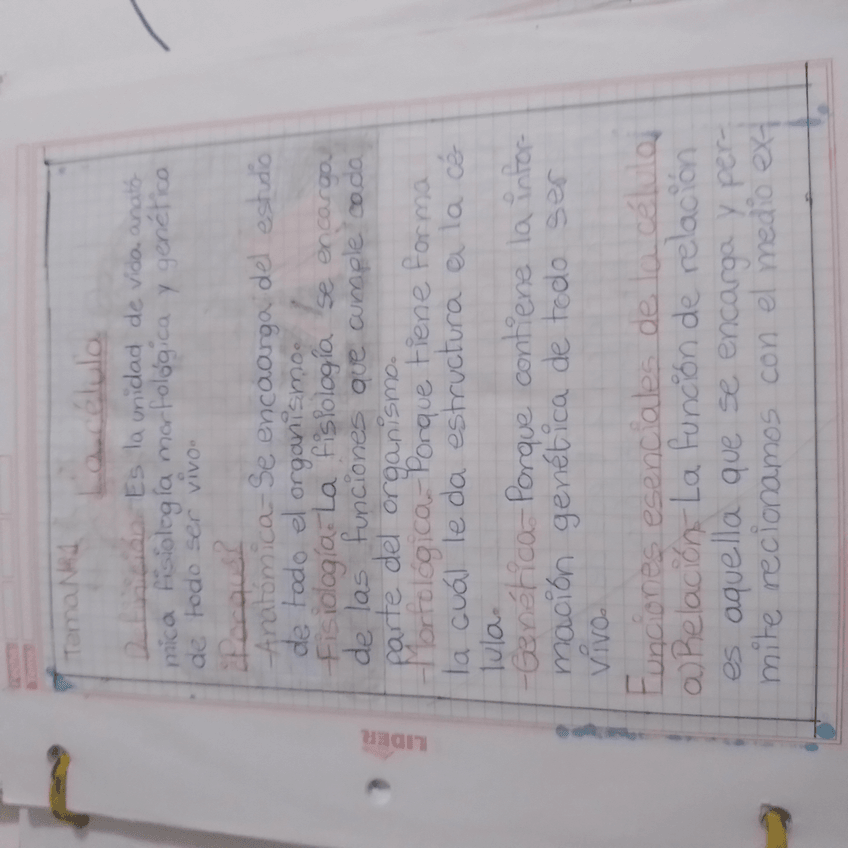 Tema Nº1
La célula
Definición.- Es la unidad de vida anató-
mica fisiología morfológica y genética
de todo ser vivo.
¿Porqué?
-Anatómica- Se encaarga del estudio
de todo el organismo.
-Fisiología.- La fisiología se encarga
de las funciones que cumple cada
parte del organismo.
-Morfológica.- Porque tiene forma
la cuál le da estructura a la cé-
lula.
-Genética.- Porque contiene la infor-
mación genética de todo ser
vivo.
Funciones esenciales de la célula
a) Relación.- La función de relación
es aquella que se encarga y per-
mite recionamos con el medio ex-
LIDER